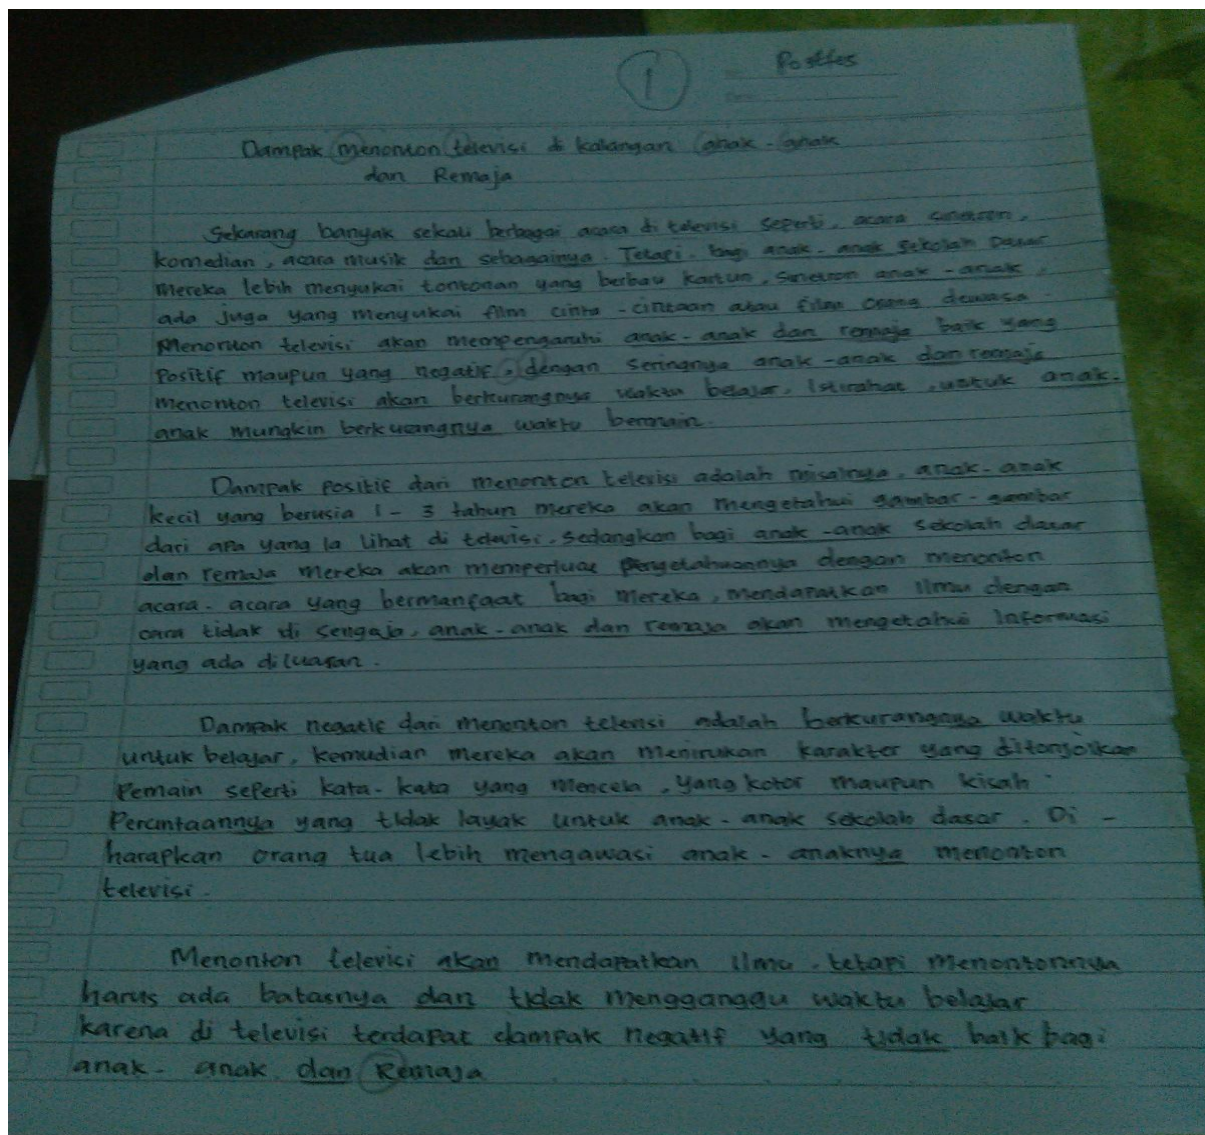 1
Posttes
Dampak menonton televisi di kalangan anak-anak
dan Remaja
Sekarang banyak sekali berbagai acara di televisi seperti, acara sinetron,
komedian, acara musik dan sebagainya. Tetapi, bagi anak-anak sekolah Dasar
Mereka lebih menyukai tontonan yang berbau kartun, sinetron anak-anak,
ada juga yang menyukai film cinta-cintaan atau film orang dewasa.
Menonton televisi akan mempengaruhi anak-anak dan remaja baik yang
Positif maupun yang negatif, dengan seringnya anak-anak dan remaja
menonton televisi akan berkurangnya waktu belajar, istirahat, untuk anak-
anak mungkin berkurangnya waktu bermain.
Dampak positif dari menonton televisi adalah misalnya, anak-anak
kecil yang berusia 1-3 tahun mereka akan mengetahui gambar-gambar
dari apa yang ia lihat di televisi. Sedangkan bagi anak-anak sekolah dasar
dan remaja mereka akan memperluas pengetahuannya dengan menonton
acara-acara yang bermanfaat bagi mereka, mendapatkan ilmu dengan
cara tidak di sengaja, anak-anak dan remaja akan mengetahui informasi
yang ada diluaran.
Dampak negatif dari menonton televisi adalah berkurangnya waktu
untuk belajar, kemudian mereka akan menirukan karakter yang ditonjolkan
Pemain seperti kata-kata yang mencela, yang kotor maupun kisah
Percintaannya yang tidak layak untuk anak-anak sekolah dasar. Di-
harapkan orang tua lebih mengawasi anak-anaknya menonton
televisi.
Menonton televisi akan mendapatkan ilmu, tetapi menontonnya
harus ada batasnya dan tidak mengganggu waktu belajar
karena di televisi terdapat dampak negatif yang tidak baik bagi
anak-anak dan Remaja